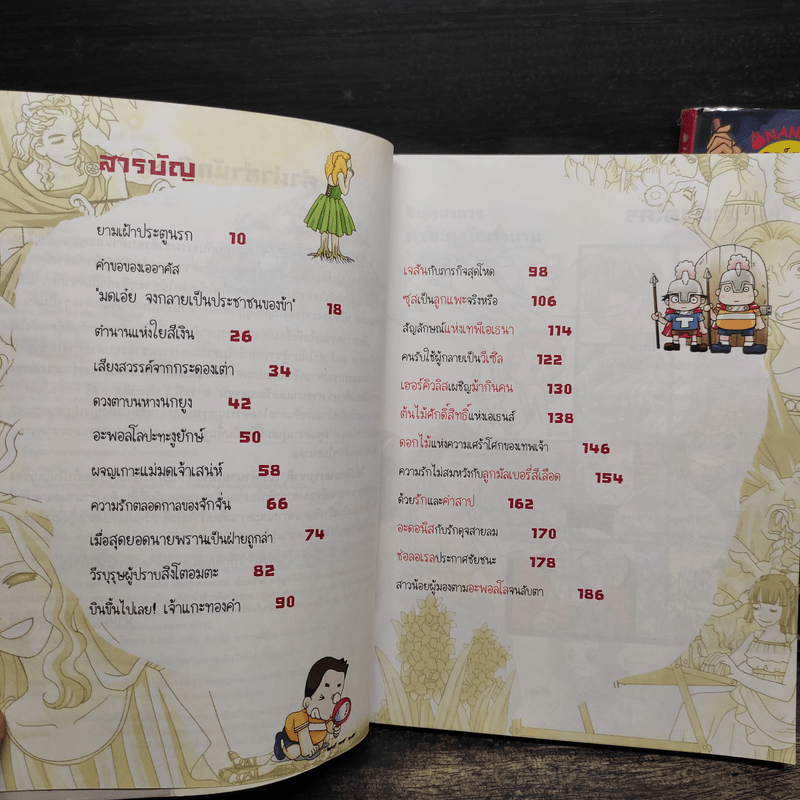 สารบัญ
ยามเฝ้าประตูนรก 10
คำขอของเออาคัส
"มดเอ๋ย จงกลายเป็นประชาชนของข้า" 18
ตำนานแห่งใยสีเงิน 26
เสียงสวรรค์จากกระดองเต่า 34
ดวงตาบนหางนกยูง 42
อะพอลโลปะทะงูยักษ์ 50
ผจญเกาะแม่มดเจ้าเสน่ห์ 58
ความรักตลอดกาลของจักจั่น 66
เมื่อสุดยอดนายพรานเป็นฝ่ายถูกล่า 74
วีรบุรุษผู้ปราบสิงโตอมตะ 82
บินขึ้นไปเลย! เจ้าแกะทองคำ 90
เจสันกับภารกิจสุดโหด 98
ซุสเป็นลูกแพะจริงหรือ 106
สัญลักษณ์แห่งเทพีเอเธนา 114
คนรับใช้ผู้กลายเป็นวีเซิล 122
เฮอร์คิวลิสเผชิญม้ากินคน 130
ต้นไม้ศักดิ์สิทธิ์แห่งเอเธนส์ 138
ดอกไม้แห่งความเศร้าโศกของเทพเจ้า 146
ความรักไม่สมหวังกับลูกมัลเบอรี่สีเลือด 154
ด้วยรักและคำสาป 162
อะดอนิสกับรักดุจสายลม 170
ช่อลอเรลประกาศชัยชนะ 178
สาวน้อยผู้มองตามอะพอลโลจนลับตา 186
T
NAN